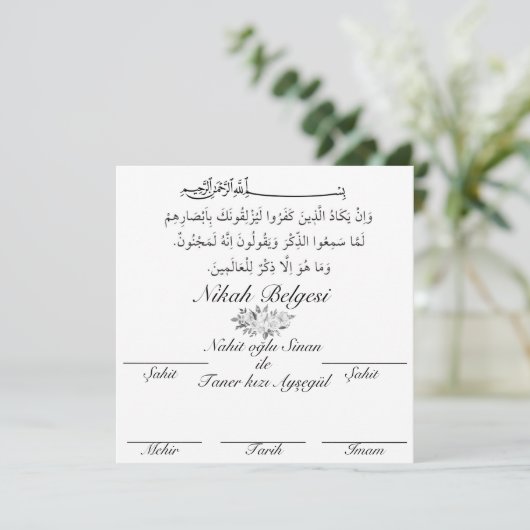 بِسْمِ اللَّهِ الرَّحْمَٰنِ الرَّحِيمِ
وَاِنْ يَكَادُ الَّذ۪ينَ كَفَرُوا لَيُزْلِقُونَكَ بِاَبْصَارِهِمْ
لَمَّا سَمِعُوا الذِّكْرَ وَيَقُولُونَ اِنَّهُ لَمَجْنُونٌ.
وَمَا هُوَ اِلَّا ذِكْرٌ لِلْعَالَمِينَ.
Nikah Belgesi
Nahit oğlu Sinan
ile
Taner kızı Ayşegül
Şahit Şahit
Mehir Tarih Imam